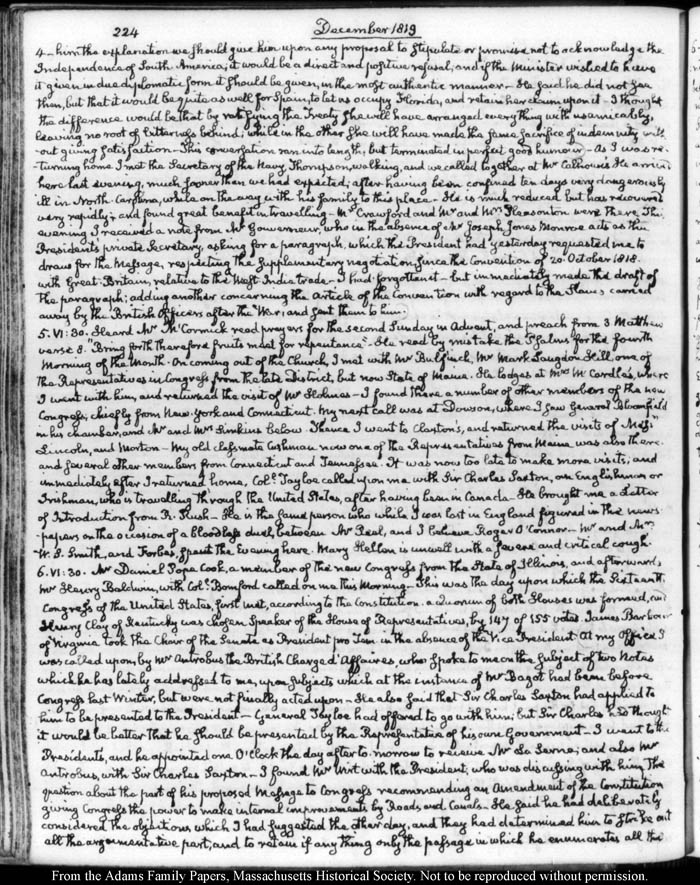 224 December 1819
4 - him the explanation we should give him upon any proposal to stipulate or promise not to acknowledge the
Independence of South America; it would be a direct and positive refusal, and if the Minister wished to have
it given in due diplomatic form it should be given, in the most authentic manner - He said he did not
then, but that it would be quite as well for Spain, to let us occupy Florida, and retain her claim upon it - I thought
the difference would be that by ratifying the Treaty she will have arranged everything with us amicably,
leaving no root of bitterness behind; while in the other she will have made the same sacrifice of indemnity with-
-out giving satisfaction - This conversation ran into length, but terminated in perfect good humour - As I was re-
-turning home I met the Secretary of the Navy, Thompson, walking, and we called together at Mr Calhoun's. He arrived
here last evening, much sooner than we had expected; after having been confined ten days very dangerously
ill in North-Carolina, while on the way with his family to this place - He is much reduced but has recovered
very rapidly; and found great benefit in travelling - Mr Crawford and Mr and Mrs Pleasonton were there. This
evening I received a note from Mr Gouverneur, who in the absence of Mr Joseph Jones Monroe acts as the
President's private Secretary, asking for a paragraph, which the President had yesterday requested me to
draw for the Message, respecting the supplementary negotiation since the Convention of 20 October 1818.
with Great-Britain, relative to the West-India trade - I had forgotten it - but immediately made the draft of
the paragraph; adding another concerning the Article of the Convention with regard to the Slaves carried
away by the British Officers after the War; and sent them to him.
5. VI: 30. Heard Mr McCormick read prayers for the second Sunday in Advent, and preach from 3 Matthew
verse 8. "Bring forth therefore fruits meet for repentance". He read by mistake the Psalms for the fourth
Morning of the Month. On coming out of the Church, I met with Mr Bulfinch, Mr Mark Langdon Hill, one of
the Representatives in Congress from the late District, but now State of Maine. He lodges at Mrs McCardle's, where
I went with him, and returned the visit of Mr Holmes - I found there a number of other members of the new
Congress, chiefly from New-York and Connecticut. My next call was at Dowson, where I saw General Bloomfield
in his chamber, and Mr and Mrs below. Thence I went to Claxton's, and returned the visits of Messrs
Lincoln, and Morton - My old classmate Cushman now one of the Representatives from Maine was also there.
and several other members from Connecticut and Tennessee. It was now too late to make more visits, and
immediately after I returned home, Coll. Tayloe called upon me with Sir Charles Saxton, an Englishman or
Irishman, who is travelling through the United States, after having been in Canada - He brought me a Letter
of Introduction from R. Rush - He is the same person who while I was last in England figured in the news-
papers on the occasion of a bloodless duel, between Mr Peel, and I believe Roger O'Connor - Mr and Mrs
W. S. Smith, and Forbes, spent the Evening here. Mary Hellen is unwell with a severe and critical cough.
6. VI: 30. Mr Daniel Pope Cook, a member of the new Congress from the State of Illinois, and afterwards
Mr Henry Baldwin, with Coll. Bomford called on me this Morning. This was the day upon which the Sixteenth
Congress of the United States, first met, according to the Constitution. a Quorum of both Houses was formed, and
Henry Clay of Kentucky was chosen Speaker of the House of Representatives, by 147 of 155 votes. James Barbour
of Virginia took the Chair of the Senate as President pro Tem in the absence of the Vice President. At my Office I
was called upon, by Mr Antrobus the British Chargé d'Affaires, who spoke to me on the subject of two Notes
which he has lately addressed to me, upon subjects which at the instance of Mr Bagot had been before
Congress last Winter, but were not finally acted upon - He also said that Sir Charles Saxton had applied to
him to be presented to the President - General Tayloe had offered to go with him; but Sir Charles had thought
it would be better that he should be presented by the Representative of his own Government - I went to the
President's, and he appointed one O'Clock the day after to-morrow to receive Mr La Serna; and also Mr
Antrobus, with Sir Charles Saxton - I found Mr Wirt with the President, who was discussing with him, the
question about the part of his proposed Message to Congress recommending an Amendment of the Constitution
giving Congress the power to make internal improvements by Roads and Canals. He said he had deliberately
considered the objections which I had suggested the other day, and they had determined him to strike out
all the argumentative part, and to retain if any thing only the passage in which he enumerates all the
From the Adams Family Papers, Massachusetts Historical Society. Not to be reproduced without permission.